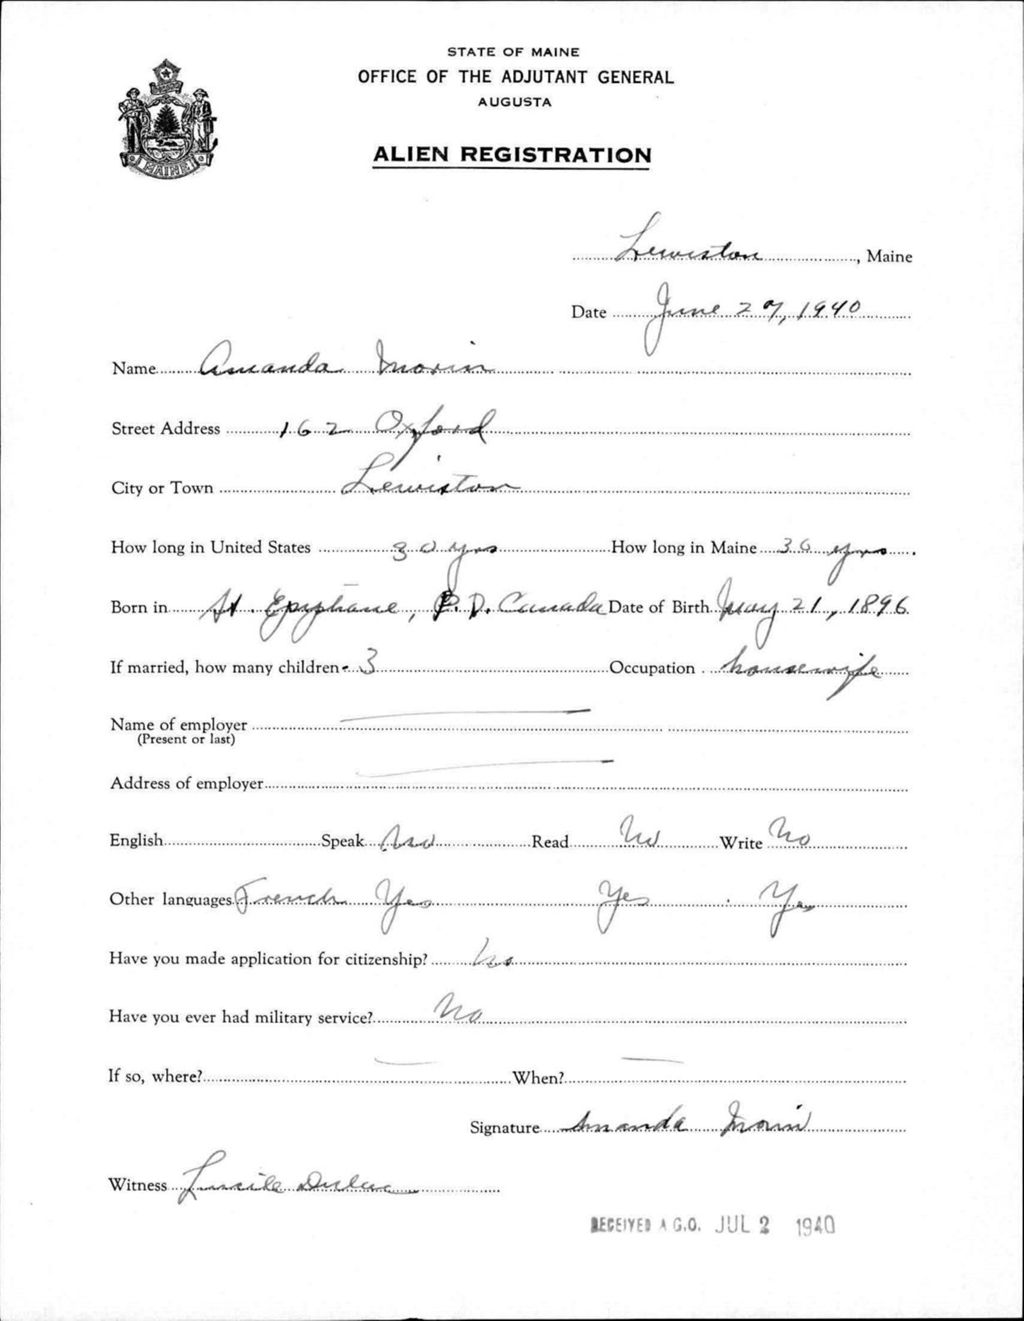 STATE OF MAINE
OFFICE OF THE ADJUTANT GENERAL
AUGUSTA
MAINE
ALIEN REGISTRATION
Lewiston, Maine
Date June 27, 1940
Name Amanda Morin
Street Address 162 Oxford
City or Town Lewiston
How long in United States 30 yrs How long in Maine 30 yrs
Born in St. Epiphane, P.Q. Canada Date of Birth May 21, 1896
If married, how many children 3 Occupation housewife
Name of employer
(Present or last)
Address of employer
English Speak No Read No Write No
Other languages French Yes Yes Yes
Have you made application for citizenship? No
Have you ever had military service? No
If so, where? When?
Signature Amanda Morin
Witness Lucile Dulac
RECEIVED A.G.O. JUL 2 1940